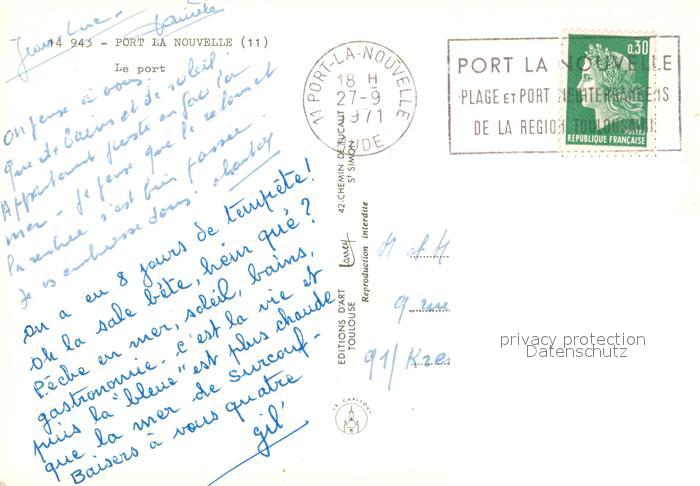 Jean-Luc - Danièle
14 943 - PORT LA NOUVELLE (11)
Le port
On pense à vous.
que de bains et de soleil.
Appartement juste en face la
mer - Je pense que le retour et
la rentrée s'est bien passée.
Je vs embrasse tous. chantal
On a eu 8 jours de tempête!
Oh la sale bête, hein qué?
Pêche en mer, soleil, bains,
gastronomie - c'est la vie et
puis la "bleue" est plus chaude
que la mer de Surcouf -
Baisers à vous quatre
gil'
EDITIONS D'ART
TOULOUSE
Larrey
42. CHEMIN DE TUCAUT
ST SIMON
Reproduction interdite
LE CAPITOLE
11 PORT-LA-NOUVELLE
18 H
27-9
1971
AUDE
PORT LA NOUVELLE
PLAGE ET PORT MEDITERRANEENS
DE LA REGION TOULOUSAINE
0,30
POSTES
REPUBLIQUE FRANÇAISE
M et M
9 rue
91/
privacy protection
Datenschutz